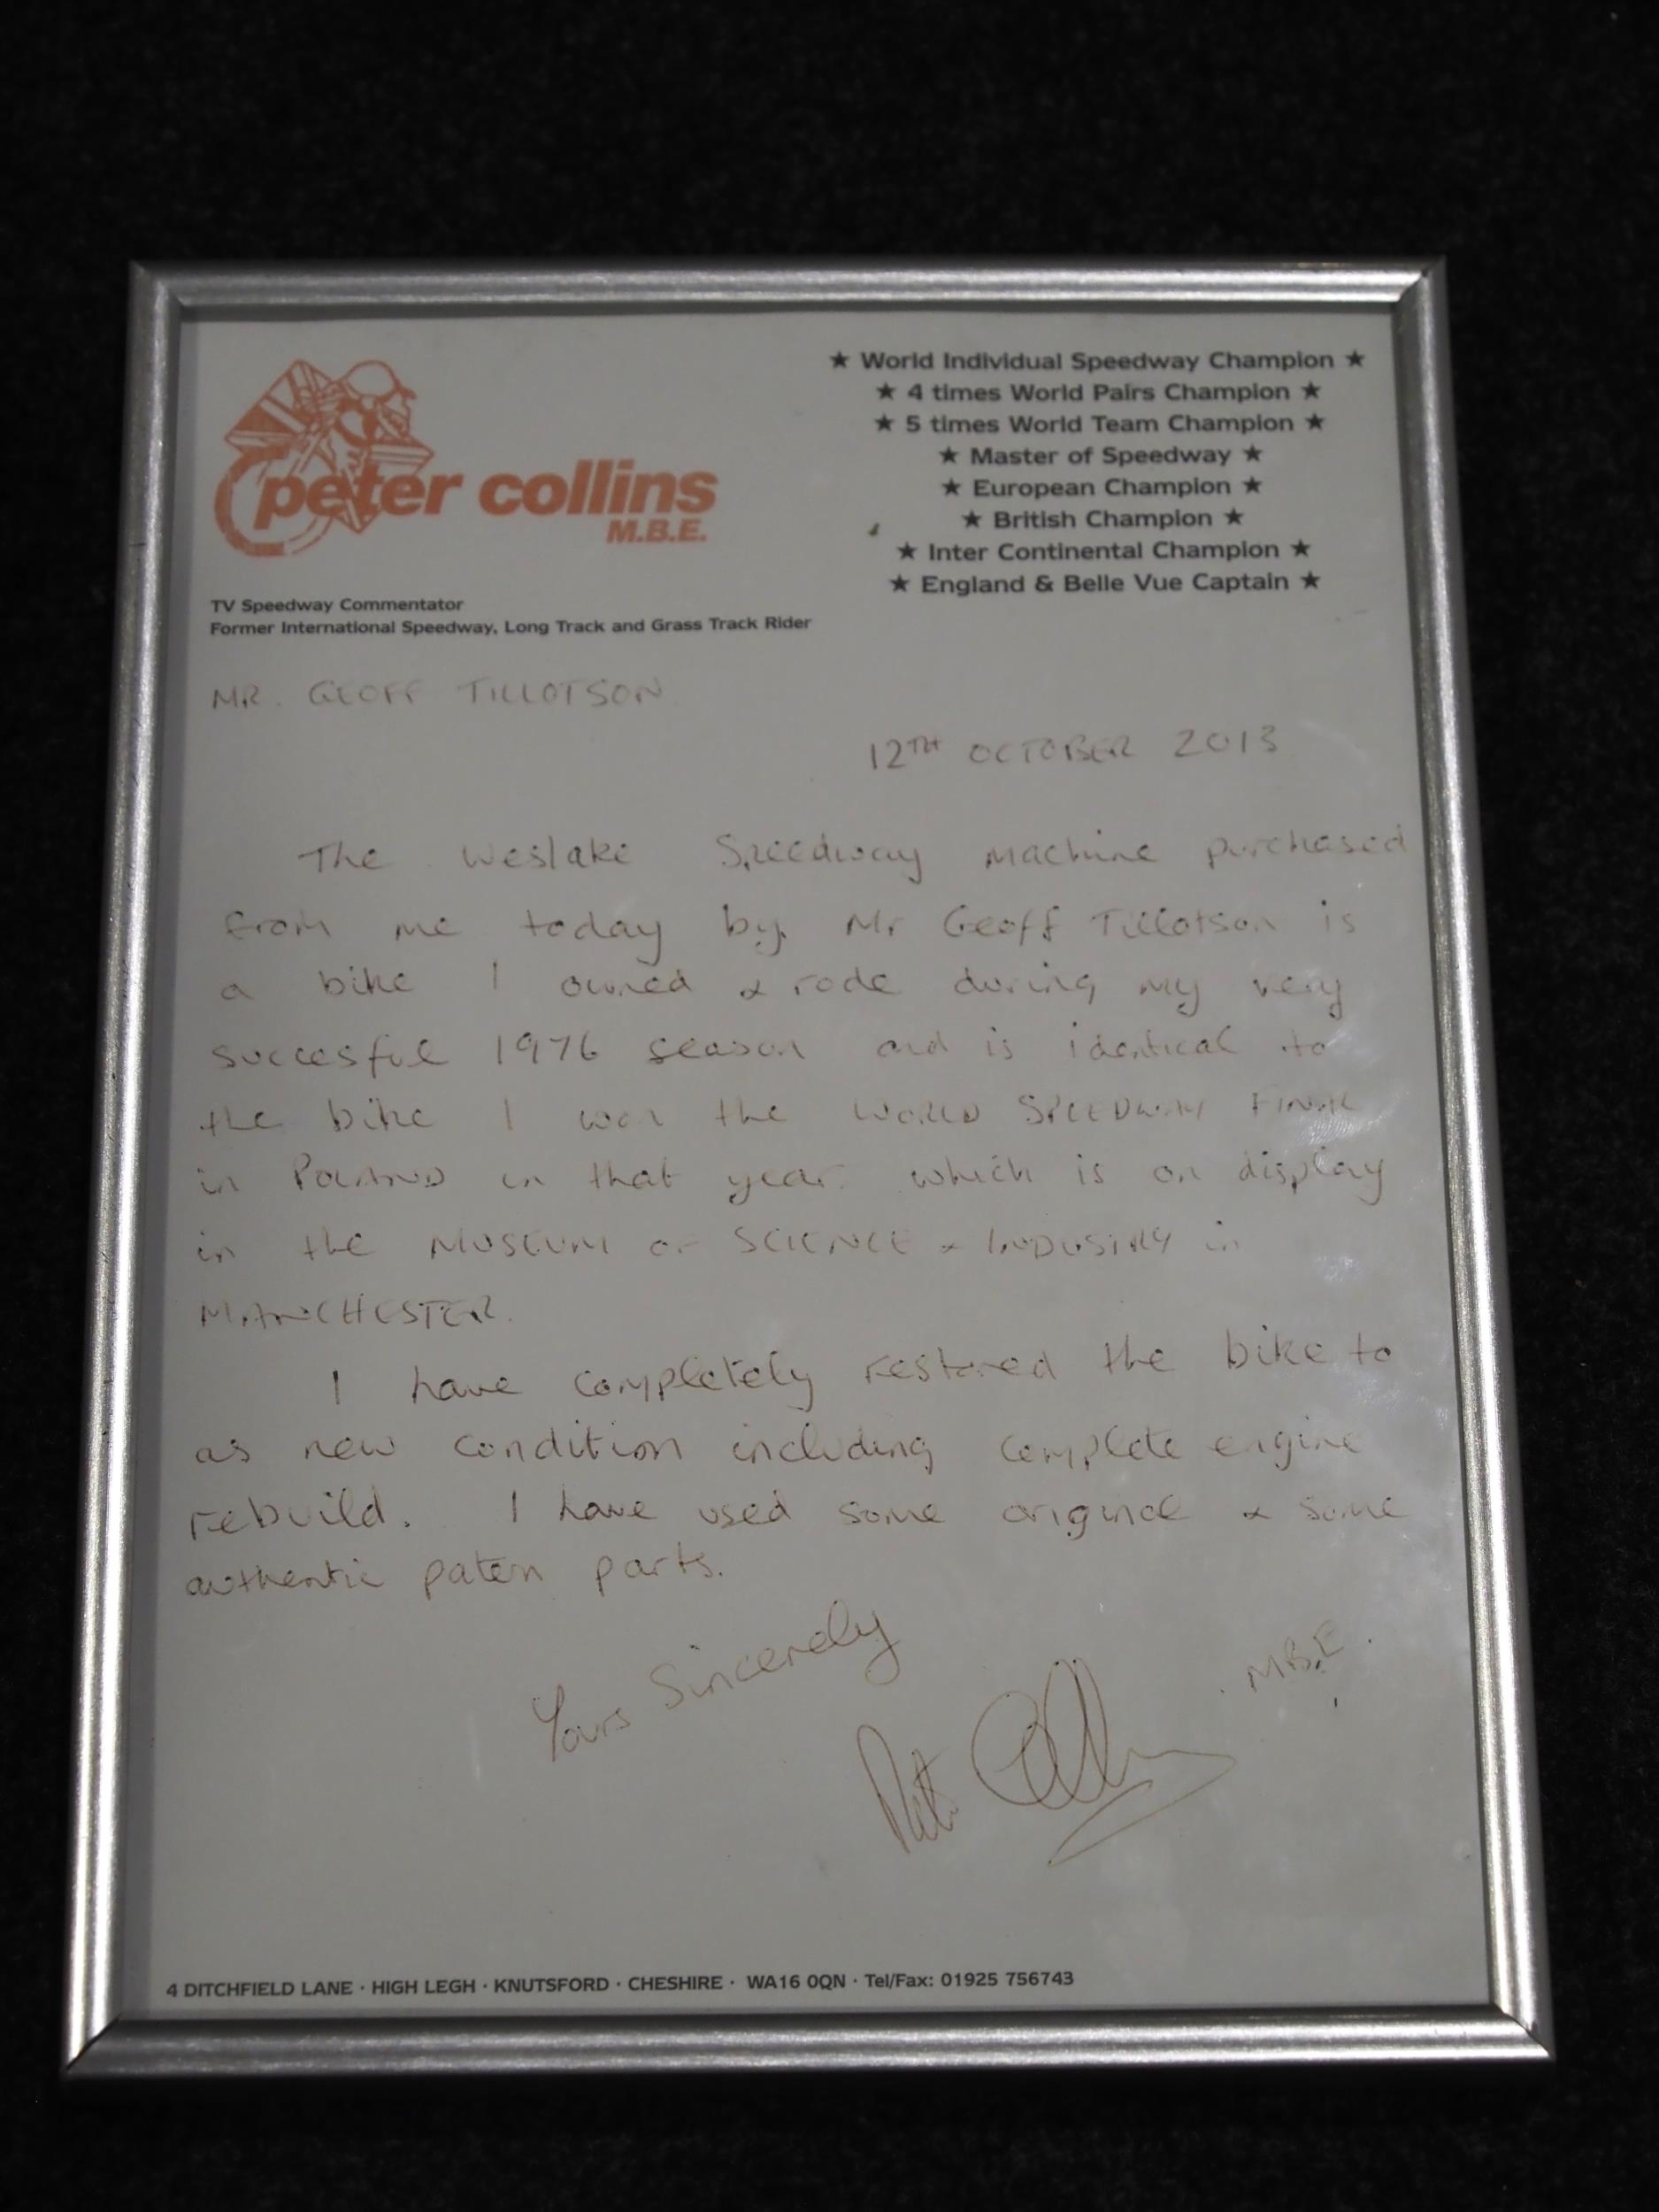 peter collins
M.B.E.
TV Speedway Commentator
Former International Speedway, Long Track and Grass Track Rider
★ World Individual Speedway Champion ★
★ 4 times World Pairs Champion ★
★ 5 times World Team Champion ★
★ Master of Speedway ★
★ European Champion ★
★ British Champion ★
★ Inter Continental Champion ★
★ England & Belle Vue Captain ★
MR. GEOFF TILLOTSON
12TH OCTOBER 2013
The Weslake Speedway Machine purchased
from me today by Mr Geoff Tillotson is
a bike I owned & rode during my very
succesful 1976 season and is identical to
the bike I won the WORLD SPEEDWAY FINAL
in POLAND in that year. which is on display
in the MUSEUM OF SCIENCE & INDUSTRY in
MANCHESTER.
I have completely restored the bike to
as new condition including complete engine
rebuild. I have used some original & some
authentic patern parts.
Yours Sincerely
Peter Collins M.B.E.
4 DITCHFIELD LANE · HIGH LEGH · KNUTSFORD · CHESHIRE · WA16 0QN · Tel/Fax: 01925 756743